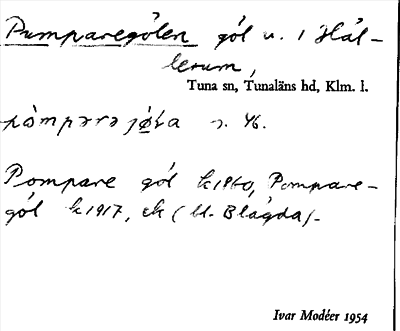 Pumparegölen göl u. i Häl-
lerum,
Tuna sn, Tunaläns hd, Klm. l.
s. 46.
Pompare göl k1960, Pompare-
göl k1917, ek ( u. Blågda).
Ivar Modéer 1954